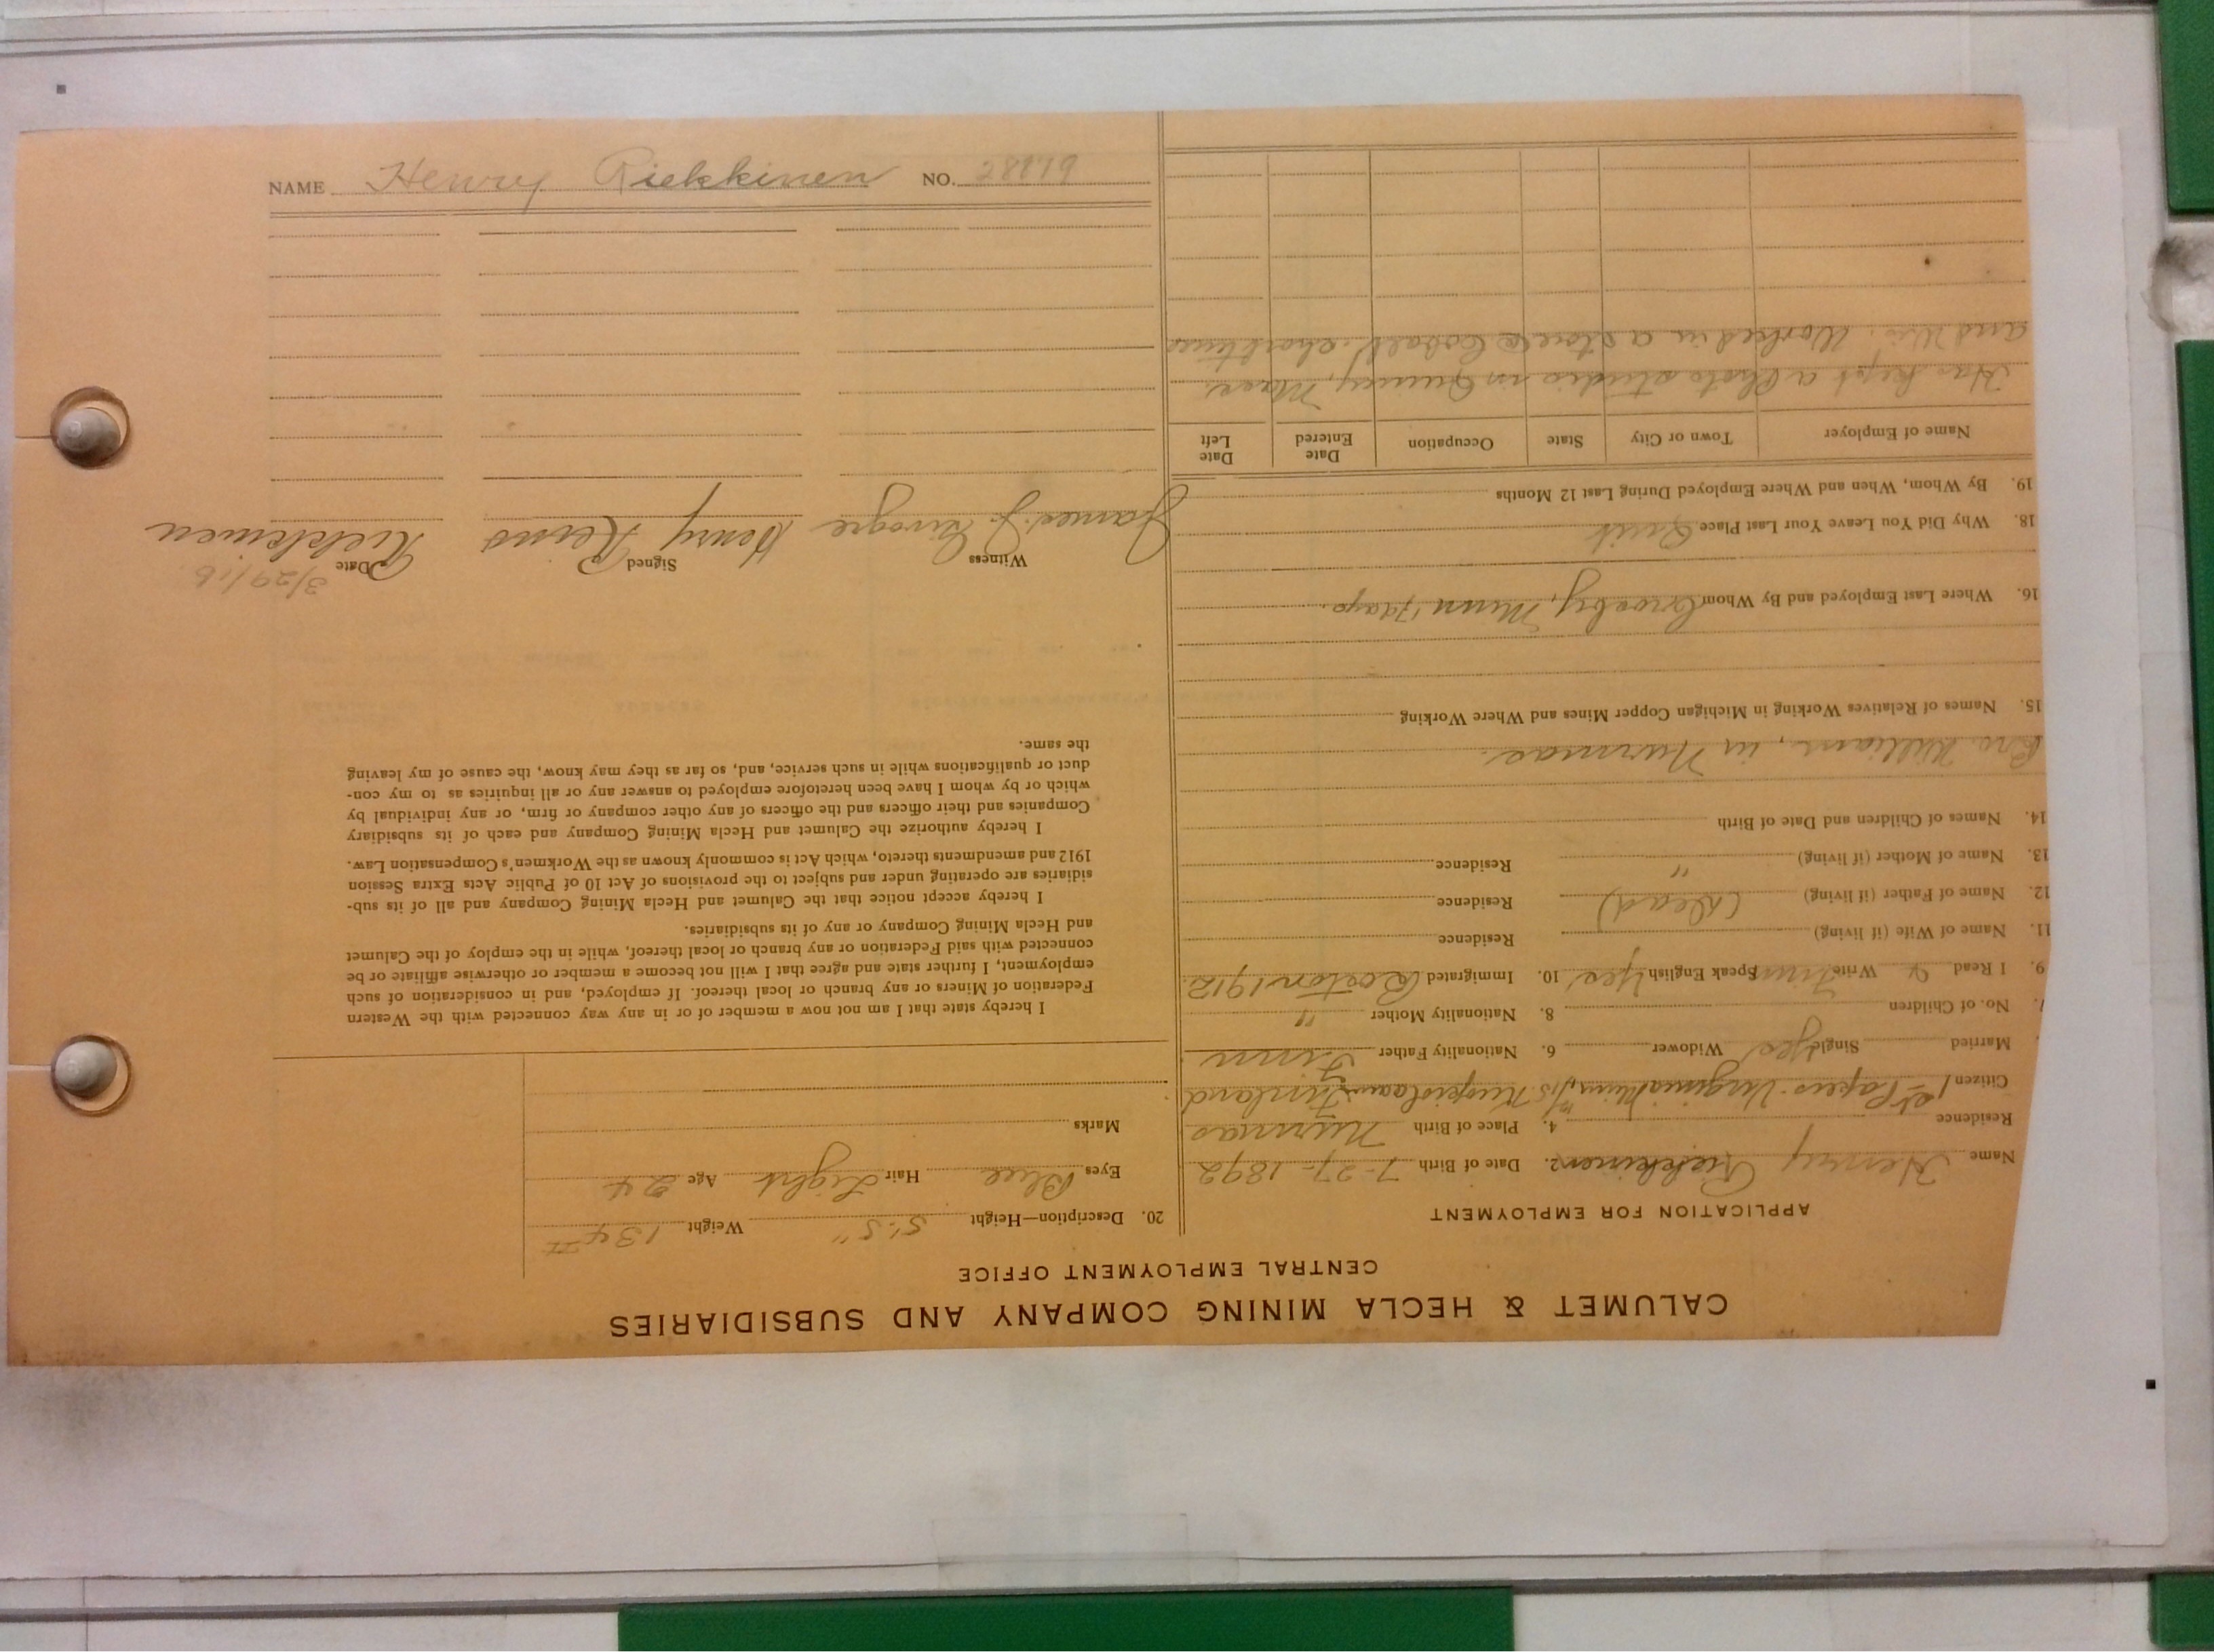 CALUMET & HECLA MINING COMPANY AND SUBSIDIARIES
CENTRAL EMPLOYMENT OFFICE
APPLICATION FOR EMPLOYMENT
Name Henry Riekkinen 2. Date of Birth 7-27-1892
Residence 4. Place of Birth Nurmas
Citizen 1st Papers-Virginia Minn, Kuopiolaani Finland
Married Single yes Widower 6. Nationality Father Finn
7. No. of Children 8. Nationality Mother "
9. I Read & Write Finn Speak English yes 10. Immigrated Boston 1912.
11. Name of Wife (if living) Residence
12. Name of Father (if living) (Dead) Residence
13. Name of Mother (if living) " Residence
14. Names of Children and Date of Birth
Bro. William, in Nurmas.
15. Names of Relatives Working in Michigan Copper Mines and Where Working
16. Where Last Employed and By Whom Crosby, Minn 17 days.
18. Why Did You Leave Your Last Place Quit
19. By Whom, When and Where Employed During Last 12 Months
Name of Employer Town or City State Occupation Date Entered Date Left
Has kept a Photo studio in Quincy, Mass.
and Wis. Worked in a store
20. Description—Height 5'-5" Weight 134#
Eyes Blue Hair Light Age 24
Marks
I hereby state that I am not now a member of or in any way connected with the Western
Federation of Miners or any branch or local thereof. If employed, and in consideration of such
employment, I further state and agree that I will not become a member or otherwise affiliate or be
connected with said Federation or any branch or local thereof, while in the employ of the Calumet
and Hecla Mining Company or any of its subsidiaries.
I hereby accept notice that the Calumet and Hecla Mining Company and all of its sub-
sidiaries are operating under and subject to the provisions of Act 10 of Public Acts Extra Session
1912 and amendments thereto, which Act is commonly known as the Workmen's Compensation Law.
I hereby authorize the Calumet and Hecla Mining Company and each of its subsidiary
Companies and their officers and the officers of any other company or firm, or any individual by
which or by whom I have been heretofore employed to answer any or all inquiries as to my con-
duct or qualifications while in such service, and, so far as they may know, the cause of my leaving
the same.
Witness Signed Date 3/29/16
James J. Henry Riekkinen
NAME Henry Riekkinen NO. 28879